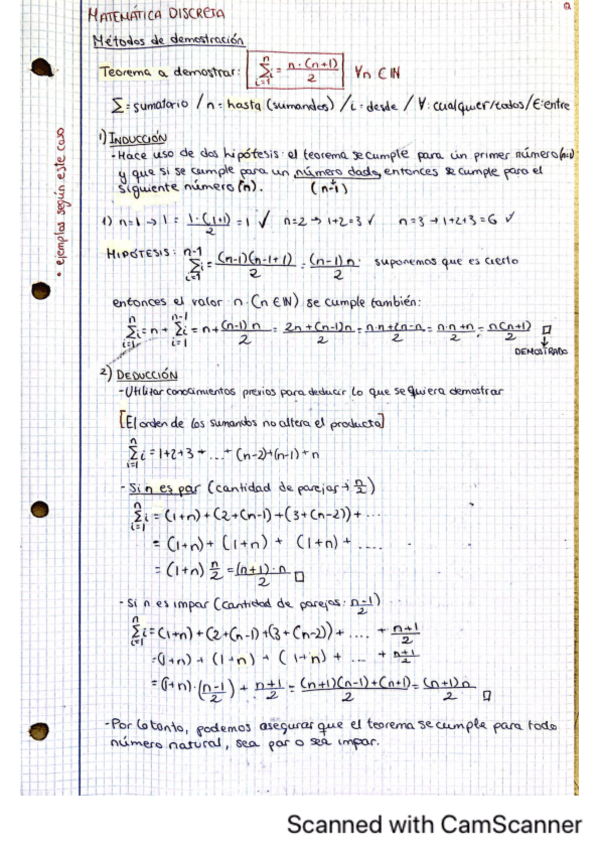 MATEMÁTICA DISCRETA
Métodos de demostración
Teorema a demostrar: n Σ i=1 i = n·(n+1) / 2 ∀n ∈ ℕ
Σ = sumatorio / n = hasta (sumandos) / i = desde / ∀: cualquier/todos / ∈: entre
• ejemplos según este caso
1) INDUCCIÓN
- Hace uso de dos hipótesis: el teorema se cumple para un primer número (n=1)
y que si se cumple para un número dado, entonces se cumple para el
siguiente número (n). (n-1)
1) n=1 → 1 = 1·(1+1) / 2 = 1 ✓ n=2 → 1+2=3 ✓ n=3 → 1+2+3=6 ✓
HIPÓTESIS: n-1 Σ i=1 i = (n-1)(n-1+1) / 2 = (n-1)n / 2 suponemos que es cierto
entonces el valor n (n ∈ ℕ) se cumple también:
n Σ i=1 i = n + n-1 Σ i=1 i = n + (n-1)n / 2 = 2n+(n-1)n / 2 = n·n+2n-n / 2 = n·n+n / 2 = n(n+1) / 2 □
DEMOSTRADO
2) DEDUCCIÓN
- Utilizar conocimientos previos para deducir lo que se quiera demostrar
[El orden de los sumandos no altera el producto]
n Σ i=1 i = 1+2+3+ ... + (n-2)+(n-1)+n
- Si n es par (cantidad de parejas ÷ n/2)
n Σ i=1 i = (1+n)+(2+(n-1)+(3+(n-2))+ ...
= (1+n)+(1+n)+(1+n)+ ....
= (1+n) n/2 = (n+1)·n / 2 □
- Si n es impar (cantidad de parejas: n-1 / 2)
n Σ i=1 i = (1+n)+(2+(n-1)+(3+(n-2))+ .... + n+1 / 2
= (1+n)+(1+n)+(1+n)+ ... + n+1 / 2
= (1+n)·(n-1 / 2) + n+1 / 2 = (n+1)(n-1)+(n+1) / 2 = (n+1)n / 2 □
- Por lo tanto, podemos asegurar que el teorema se cumple para todo
número natural, sea par o sea impar.
Scanned with CamScanner